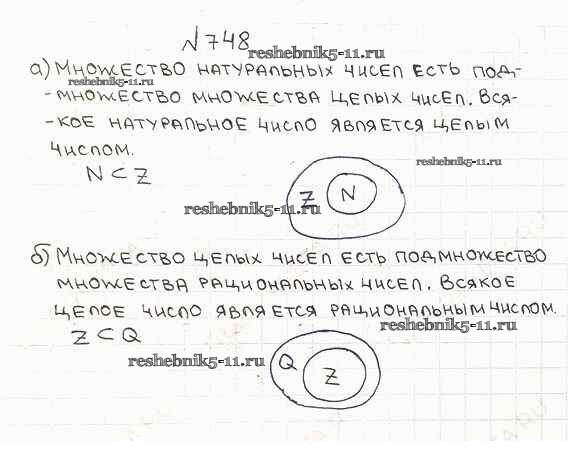 №748
reshebnik5-11.ru
а) Множество натуральных чисел есть под-
reshebnik5-11.ru
-множество множества целых чисел. Вся-
-кое натуральное число является целым
числом.
reshebnik5-11.ru
N ⊂ Z
Z N
reshebnik5-11.ru
б) Множество целых чисел есть подмножество
множества рациональных чисел. Всякое
целое число является рациональным числом.
reshebnik5-11.ru
Z ⊂ Q
reshebnik5-11.ru
Q Z